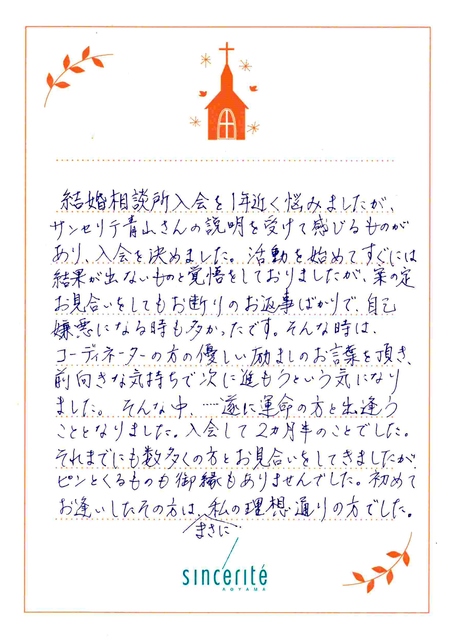 結婚相談所入会を1年近く悩みましたが、
サンセリテ青山さんの説明を受けて感じるものが
あり、入会を決めました。活動を始めてすぐには
結果が出ないものと覚悟をしておりましたが、案の定
お見合いをしてもお断りのお返事ばかりで、自己
嫌悪になる時も多かったです。そんな時は、
コーディネーターの方の優しい励ましのお言葉を頂き、
前向きな気持ちで次に進もうという気になり
ました。そんな中、…遂に運命の方と出逢う
こととなりました。入会して2ヵ月半のことでした。
それまでにも数多くの方とお見合いをしてきましたが
ピンとくるものも御縁もありませんでした。初めて
お逢いしたその方は、私の理想通りの方でした。
まさに
sincerité
AOYAMA